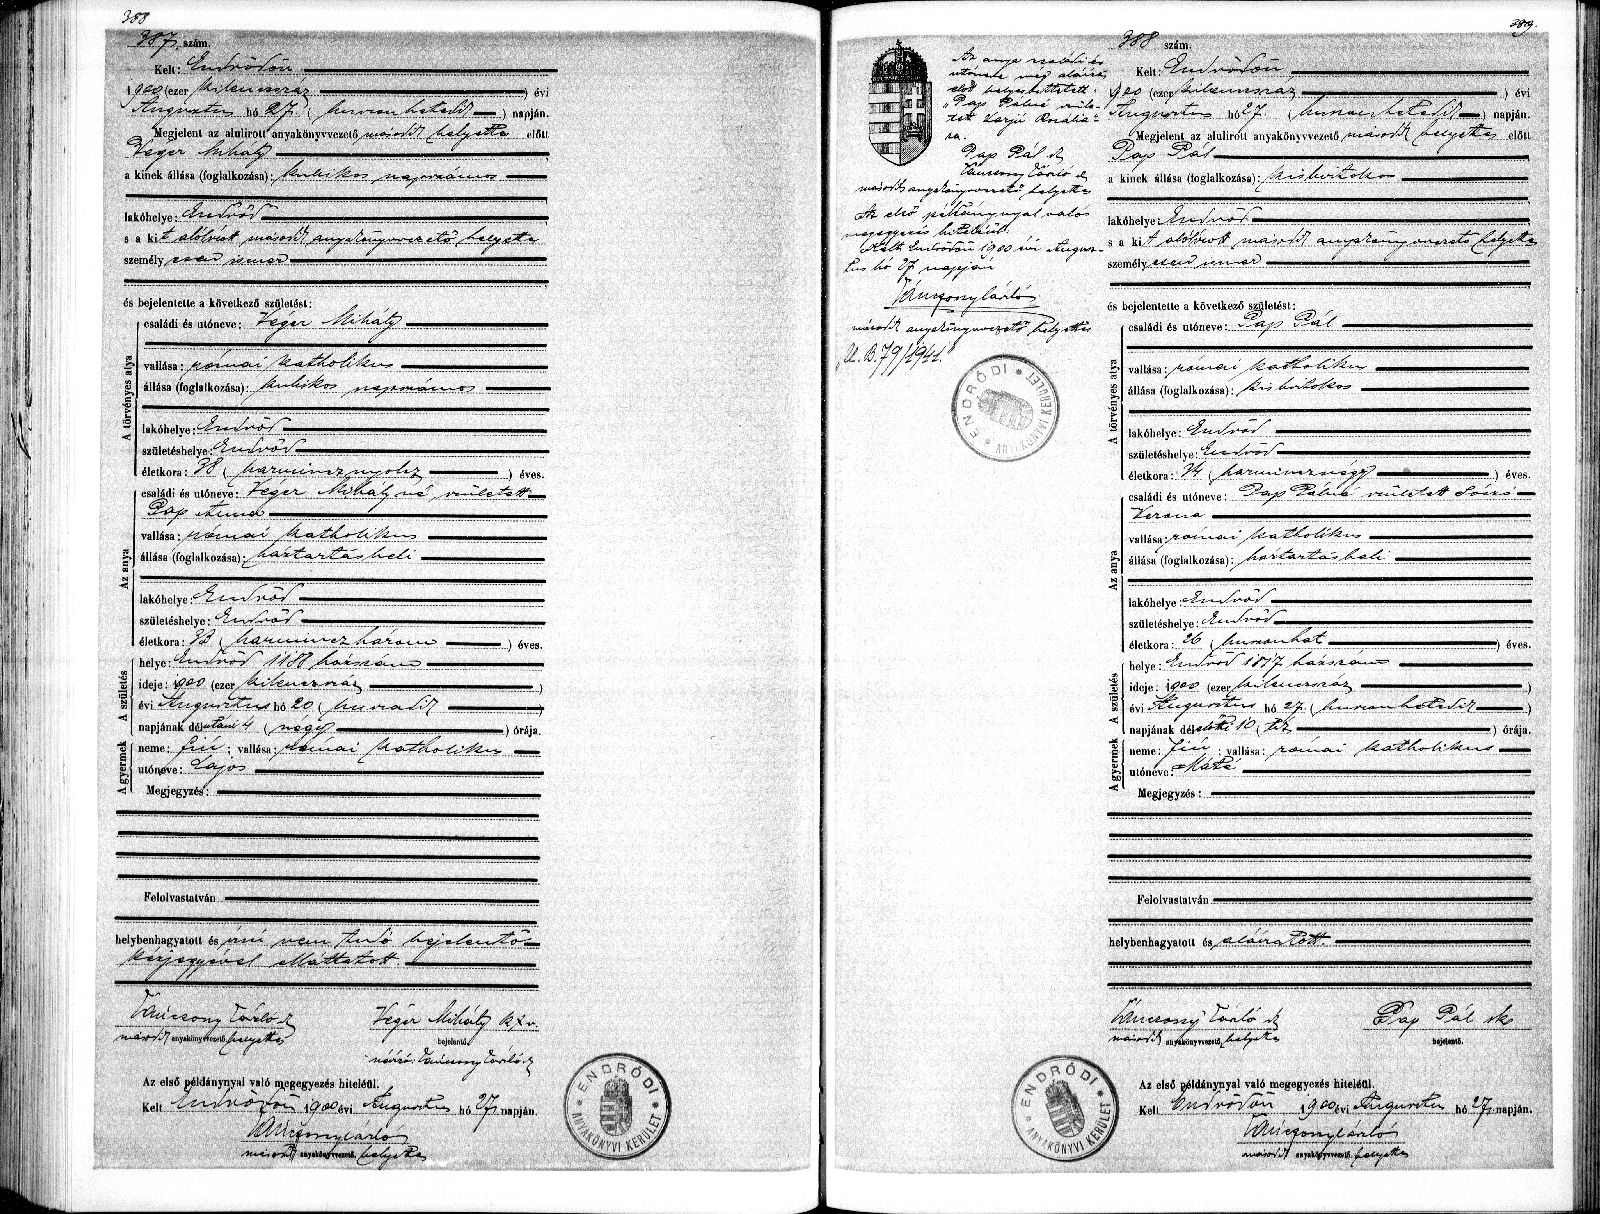 388
387 szám.
Kelt: Endrődön
1900 (ezer kilenczszáz) évi
Augusztus hó 27 (huszonhetedik) napján.
Megjelent az alulirott anyakönyvvezető második helyettes előtt
Véger Mihály
a kinek állása (foglalkozása): kubikos napszámos
lakóhelye: Endrőd
s a kit alólirott második anyakönyvvezető helyettes
személyesen ismer
és bejelentette a következő születést:
A törvényes atya
családi és utóneve: Véger Mihály
vallása: római katholikus
állása (foglalkozása): kubikos napszámos
lakóhelye: Endrőd
születéshelye: Endrőd
életkora: 38 (harmincznyolcz) éves.
Az anya
családi és utóneve: Véger Mihályné, született
Pap Anna
vallása: római katholikus
állása (foglalkozása): háztartásbeli
lakóhelye: Endrőd
születéshelye: Endrőd
életkora: 33 (harminczhárom) éves.
A születés
helye: Endrőd 1188 házszám
ideje: 1900 (ezer kilenczszáz)
évi Augusztus hó 20 (huszadik)
napjának délutáni 4 (négy) órája.
A gyermek
neme: fiú; vallása: római katholikus
utóneve: Lajos
Megjegyzés:
Felolvastatván
helybenhagyatott és irni nem tudó bejelentős
kézjegyével elláttatott.
Vánesony László
Véger Mihály k.j.v.
második anyakönyvvezető, helyettes
bejelentő.
Az első példánynyal való megegyezés hiteléül.
Kelt Endrődön 1900 évi Augusztus hó 27 napján.
második anyakönyvvezető. helyettes
ENDRŐDI ANYAKÖNYVI KERÜLET
389.
Az anya családi és
utóneve még aláirás
előtt helyesbittetett
"Pap Pálné szüle-
tett Varjú Rozáliá-
ra.
Pap Pál
második anyakönyvvezető helyettes
Az első példánynyal való
megegyezés hiteléül.
Kelt Endrődön 1900 évi Augusz-
tus hó 27 napján
második anyakönyvvezető helyettes
B. 79/1941.
ENDRŐDI ANYAKÖNYVI KERÜLET
388 szám.
Kelt: Endrődön
1900 (ezer kilenczszáz) évi
Augusztus hó 27 (huszonhetedik) napján.
Megjelent az alulirott anyakönyvvezető második helyettes előtt
Pap Pál
a kinek állása (foglalkozása): kisbirtokos
lakóhelye: Endrőd
s a kit alólirott második anyakönyvvezető helyettes
személyesen ismer
és bejelentette a következő születést:
A törvényes atya
családi és utóneve: Pap Pál
vallása: római katholikus
állása (foglalkozása): kisbirtokos
lakóhelye: Endrőd
születéshelye: Endrőd
életkora: 34 (harmincznégy) éves.
Az anya
családi és utóneve: Pap Pálné született
Verona
vallása: római katholikus
állása (foglalkozása): háztartásbeli
lakóhelye: Endrőd
születéshelye: Endrőd
életkora: 26 (huszonhat) éves.
A születés
helye: Endrőd 1817 házszám
ideje: 1900 (ezer kilenczszáz)
évi Augusztus hó 27. (huszonhetedik)
napjának délelőtti 10 (tiz) órája.
A gyermek
neme: fiú; vallása: római katholikus
utóneve: Máté
Megjegyzés:
Felolvastatván
helybenhagyatott és aláiratott.
Pap Pál sk
második anyakönyvvezető, helyettes
bejelentő.
Az első példánynyal való megegyezés hiteléül.
Kelt Endrődön 1900 évi Augusztus hó 27 napján.
második anyakönyvvezető. helyettes
ENDRŐDI ANYAKÖNYVI KERÜLET